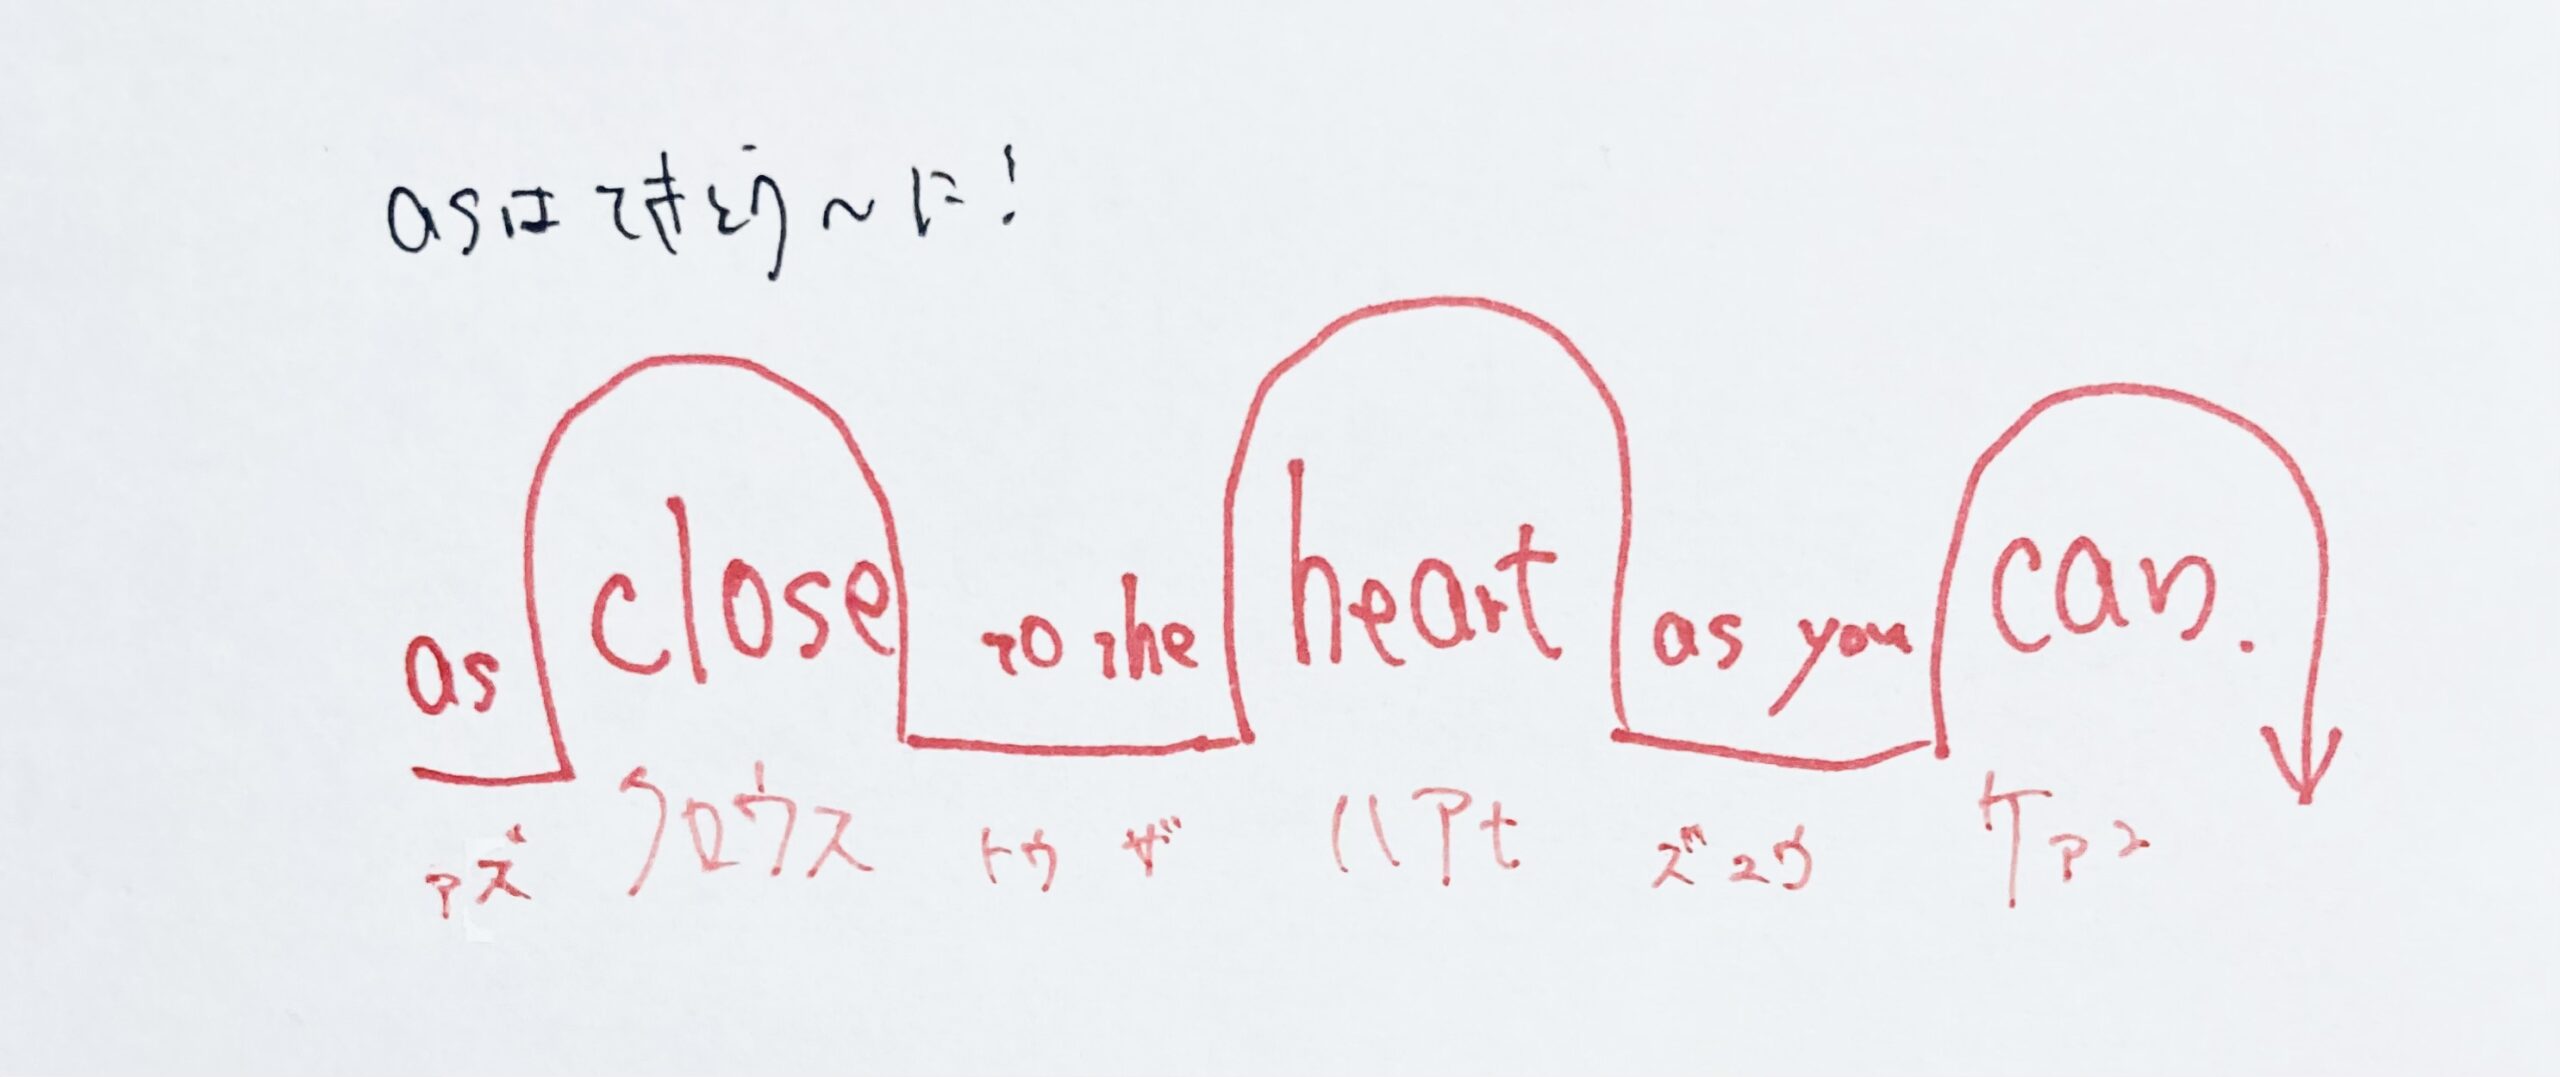 asはてきとう〜に!
as close to the heart as you can.
ァズ クロウス トゥ ザ ハアt ズユウ ケァン